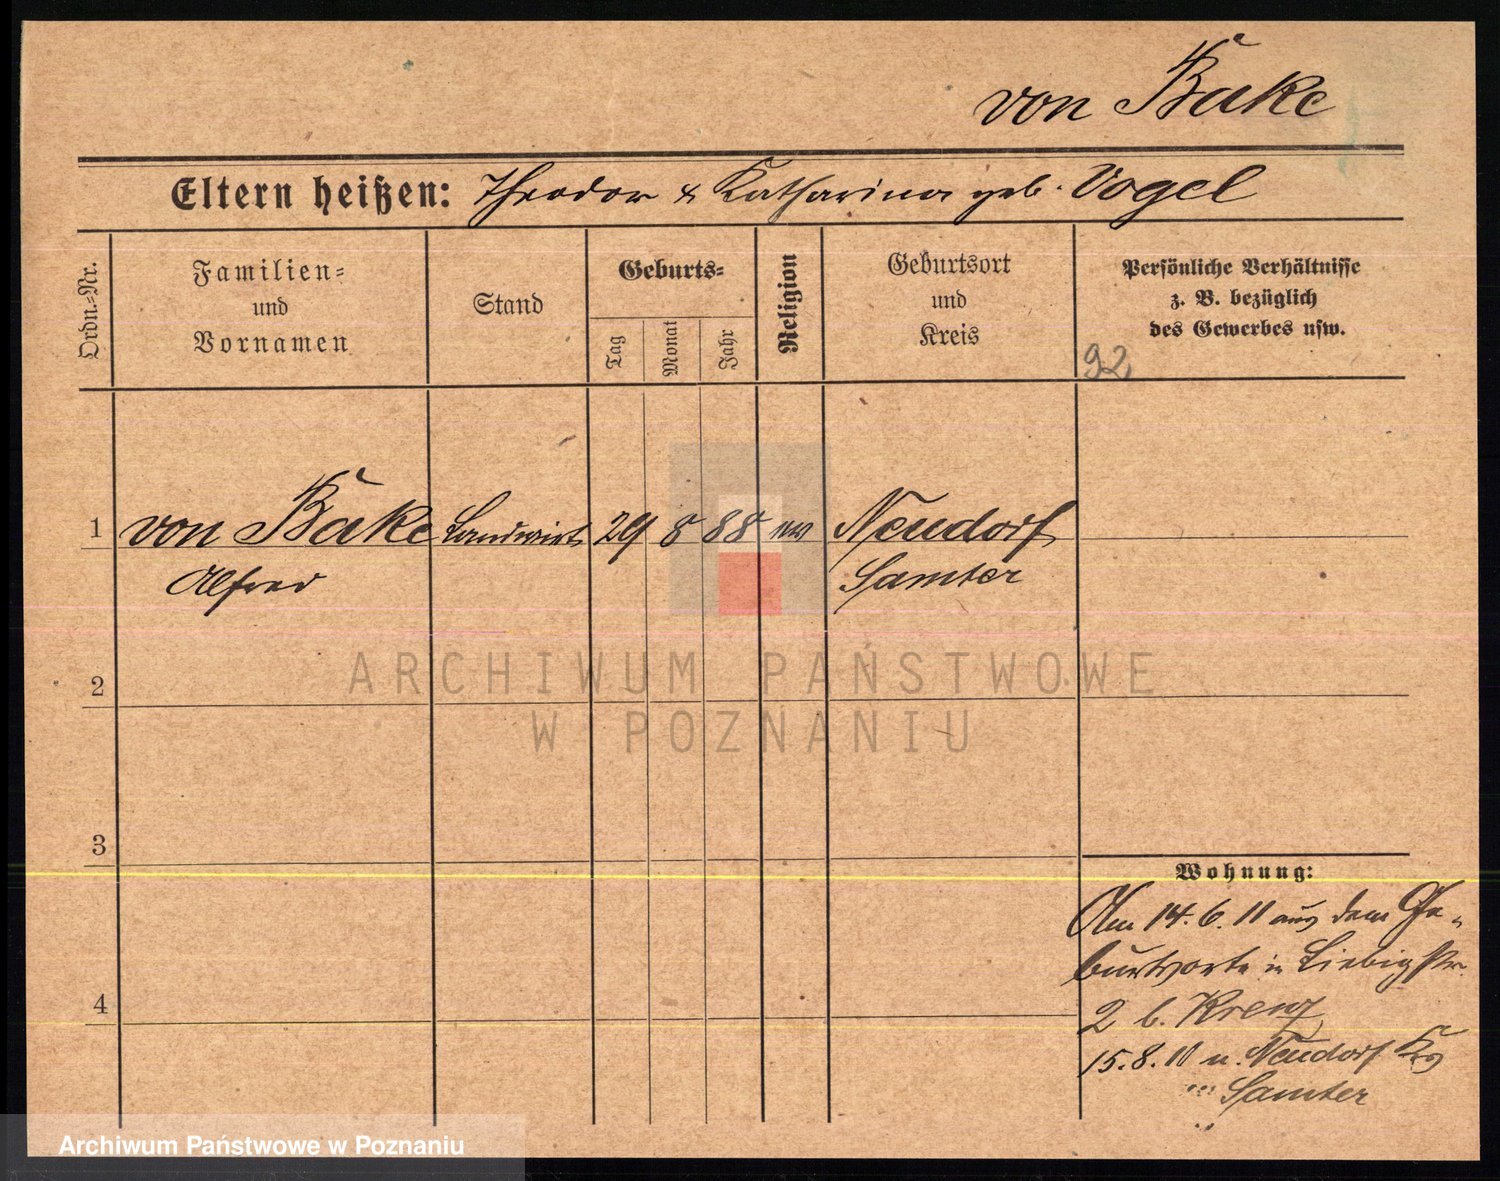 von Bake
Eltern heißen: Theodor & Katharina geb. Vogel
Ordn.=Nr.
Familien=
und
Vornamen
Stand
Geburts=
Tag
Monat
Jahr
Religion
Geburtsort
und
Kreis
Persönliche Verhältnisse
z. B. bezüglich
des Gewerbes usw.
92
1 von Bake Landwirt 29 8 88 ev Neudorf
Alfred Samter
2
3
4
Wohnung:
Am 14.6.11 aus dem Ge-
burtsorte in Liebigstr.
2 b. Krenz
15.8.11 n. Neudorf Krs
Samter
ARCHIWUM PAŃSTWOWE
W POZNANIU
Archiwum Państwowe w Poznaniu